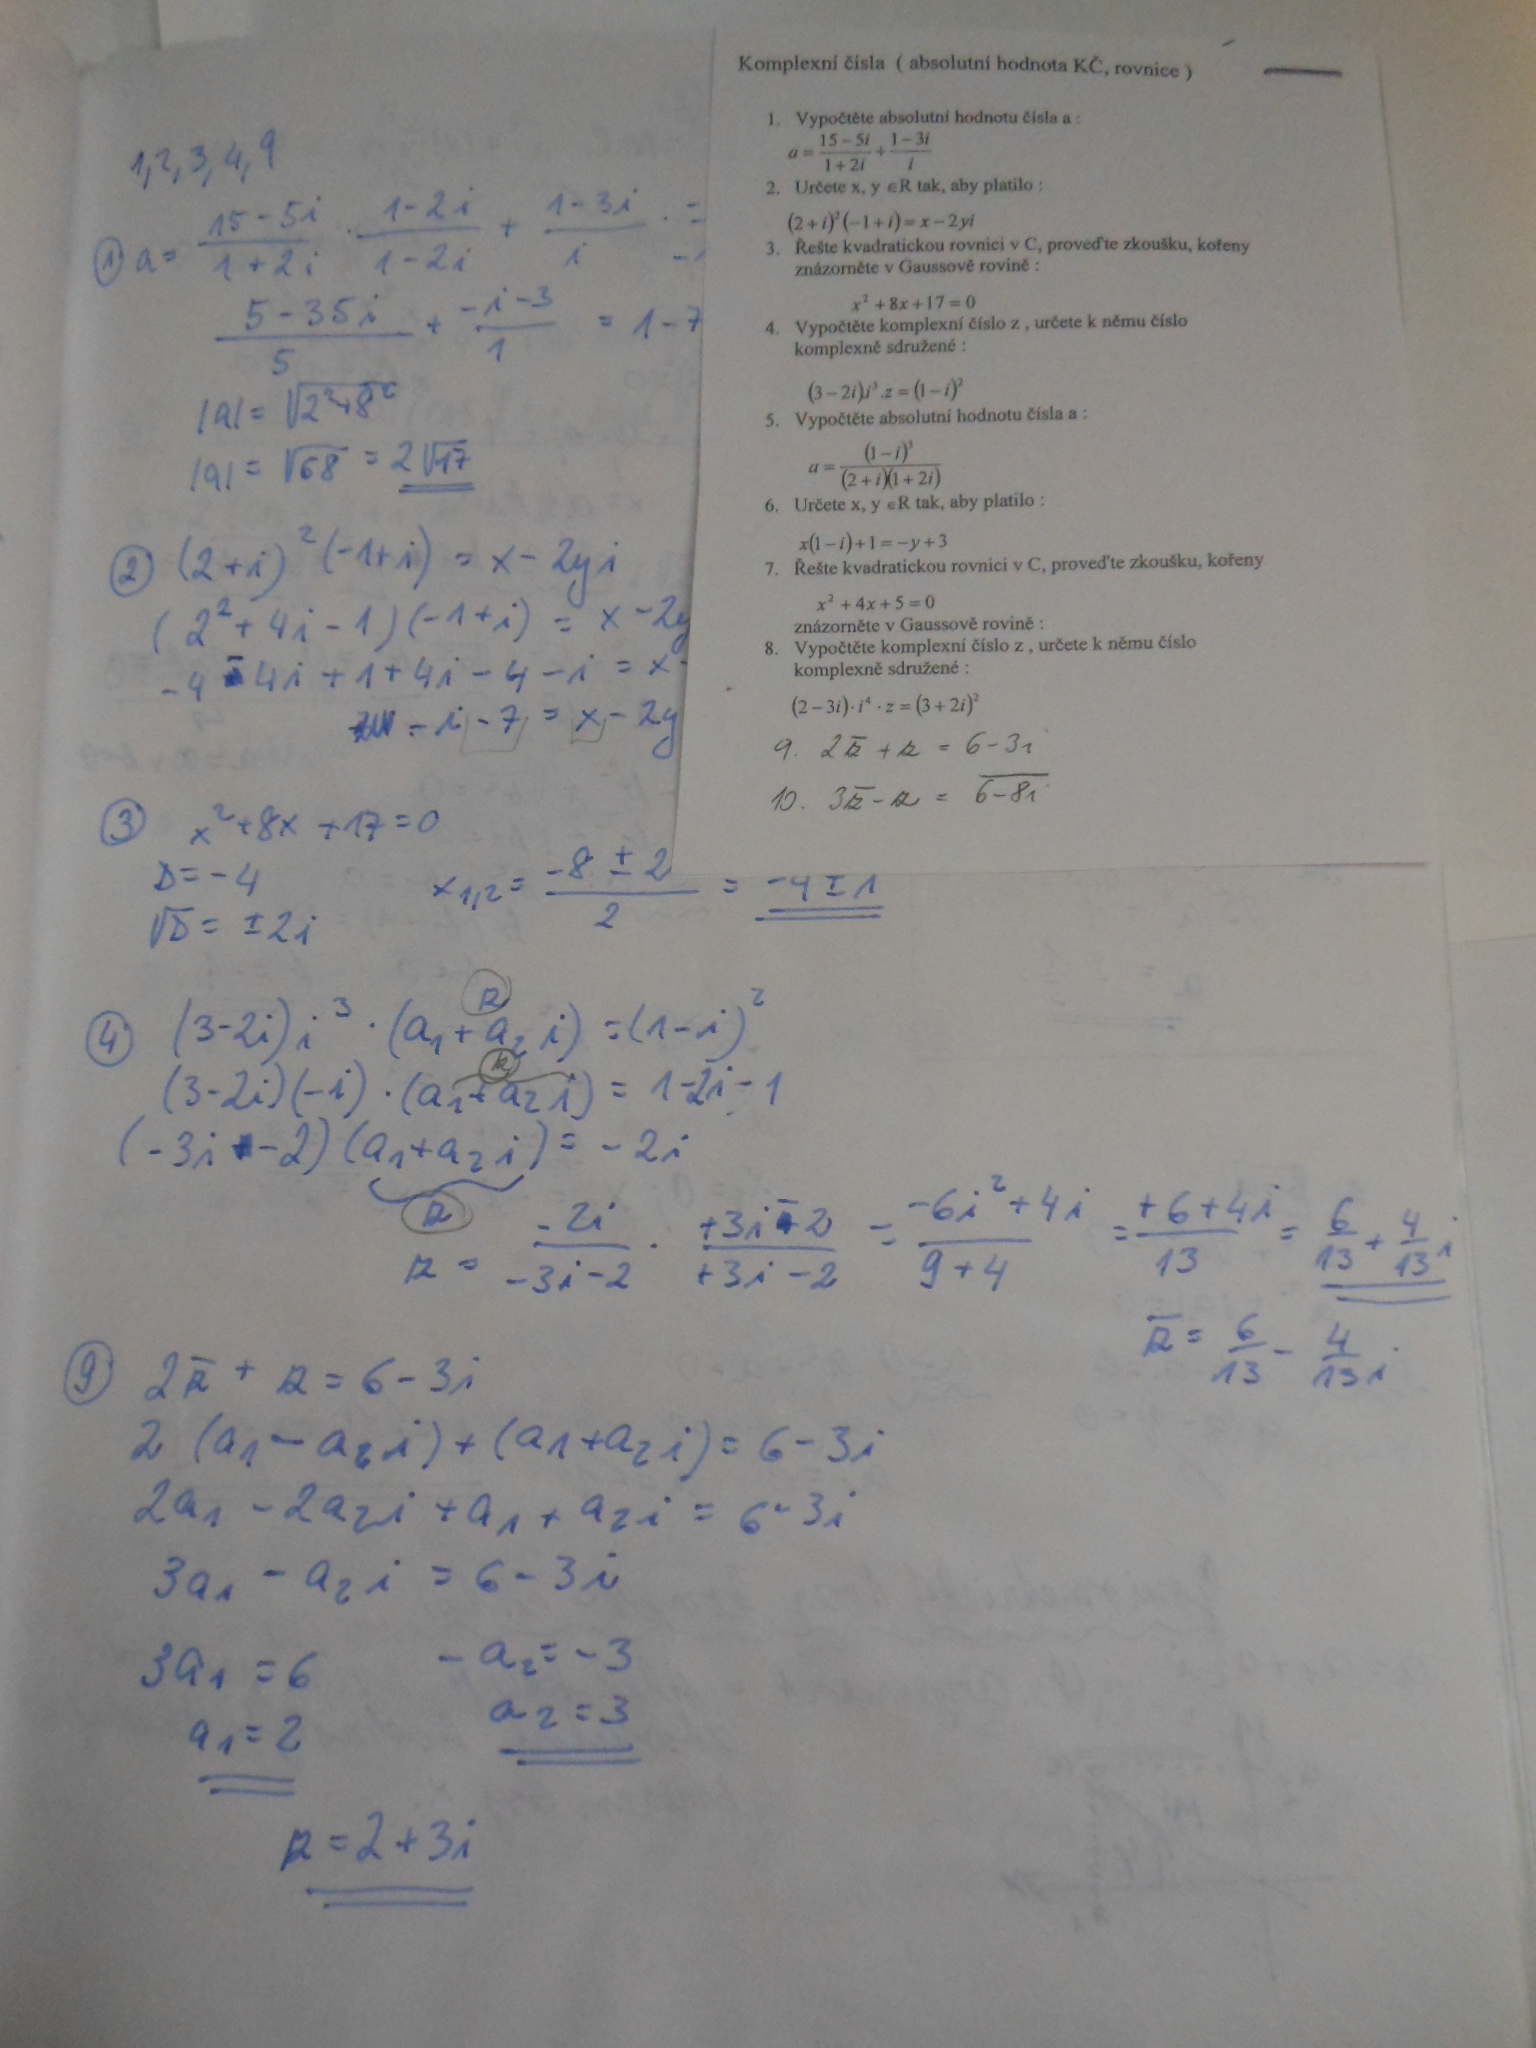 Komplexní čísla ( absolutní hodnota KČ, rovnice )
1. Vypočtěte absolutní hodnotu čísla a :
a = \frac{15-5i}{1+2i} + \frac{1-3i}{i}
2. Určete x, y ∈R tak, aby platilo :
(2+i)²(-1+i) = x-2yi
3. Řešte kvadratickou rovnici v C, proveďte zkoušku, kořeny
znázorněte v Gaussově rovině :
x² + 8x + 17 = 0
4. Vypočtěte komplexní číslo z , určete k němu číslo
komplexně sdružené :
(3-2i).i³.z = (1-i)²
5. Vypočtěte absolutní hodnotu čísla a :
a = \frac{(1-i)³}{(2+i)(1+2i)}
6. Určete x, y ∈R tak, aby platilo :
x(1-i)+1 = -y+3
7. Řešte kvadratickou rovnici v C, proveďte zkoušku, kořeny
x² + 4x + 5 = 0
znázorněte v Gaussově rovině :
8. Vypočtěte komplexní číslo z , určete k němu číslo
komplexně sdružené :
(2-3i)·i⁴·z = (3+2i)²
9. 2z̄ + z = 6-3i
10. 3z̄ - z = \overline{6-8i}
1,2,3,4,9
① a = \frac{15-5i}{1+2i} · \frac{1-2i}{1-2i} + \frac{1-3i}{i} ·
\frac{5-35i}{5} + \frac{-i-3}{1} = 1-7
|a| = √(2²+8²)
|a| = √68 = 2√17
② (2+i)²(-1+i) = x-2yi
(2²+4i-1)(-1+i) = x-2y
-4-4i+1+4i-4-i = x-
-i-7 = x-2y
③ x²+8x+17=0
D=-4
x₁,₂ = \frac{-8±2}{2} = -4±1
√D = ±2i
④ (3-2i)i³·(a₁+a₂i) = (1-i)²
z
(3-2i)(-i)·(a₁+a₂i) = 1-2i-1
z
(-3i-2)(a₁+a₂i) = -2i
z
z = \frac{-2i}{-3i-2} · \frac{+3i-2}{+3i-2} = \frac{-6i²+4i}{9+4} = \frac{+6+4i}{13} = \frac{6}{13} + \frac{4}{13}i
z̄ = \frac{6}{13} - \frac{4}{13}i
⑨ 2z̄ + z = 6-3i
2(a₁-a₂i)+(a₁+a₂i) = 6-3i
2a₁-2a₂i+a₁+a₂i = 6-3i
3a₁-a₂i = 6-3i
3a₁=6 -a₂=-3
a₁=2 a₂=3
z=2+3i